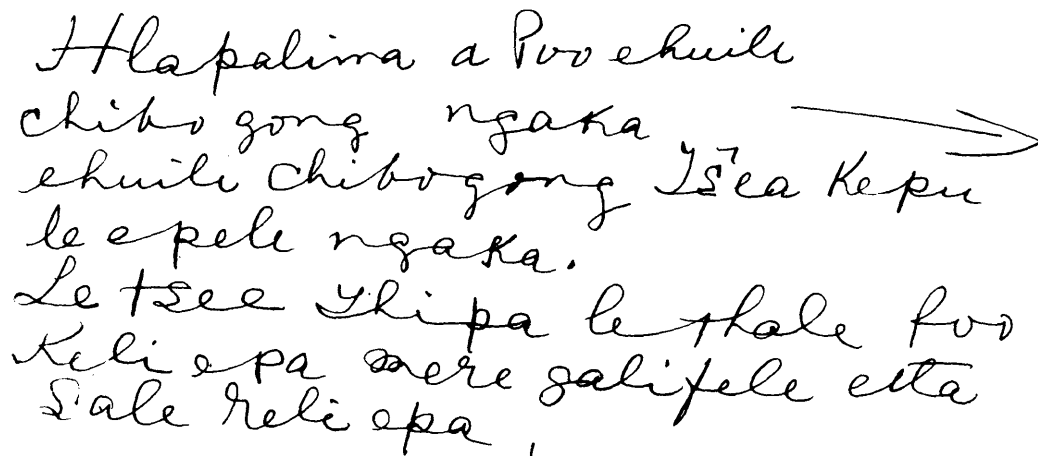 Hlapalima a Poo ehuile
chibogong ngaka
ehuile chibogong Tšea Kepu
le epele ngaka.
Le tsee Thipa le thale foo
Keli epa mere galifele etta
Sale reli epa,